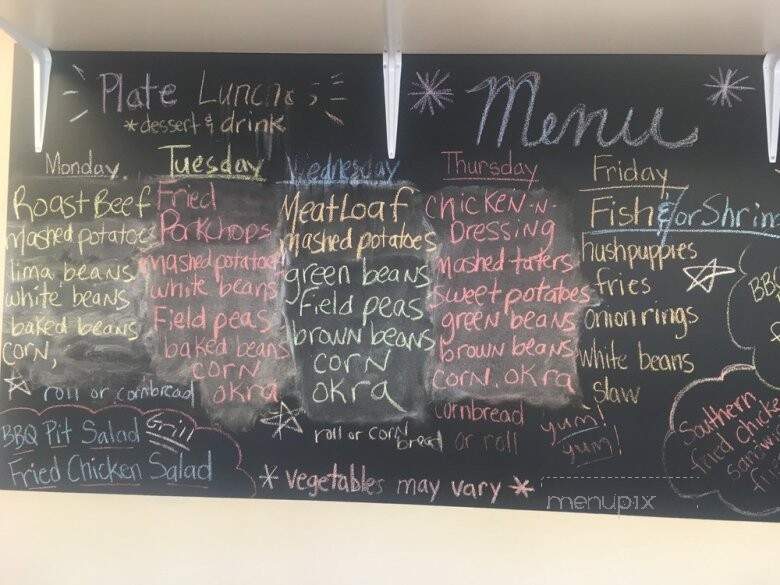 Plate Lunches
*dessert & drink
* Menu *
Monday
Roast Beef
Mashed potatoes
lima beans
white beans
baked beans
Corn,
roll or cornbread
Tuesday
Fried
Porkchops
mashed potatoes
white beans
Field peas
baked beans
corn
okra
Wednesday
Meatloaf
mashed potatoes
green beans
Field peas
brown beans
corn
okra
roll or corn
bread
Thursday
Chicken-n-
Dressing
Mashed taters
sweet potatoes
green beans
brown beans
corn, okra
cornbread
or roll
Friday
Fish &/or Shrim
hushpuppies
fries
onion rings
white beans
Slaw
yum!
yum!
BBQ Pit Salad Grill
Fried Chicken Salad
* Vegetables may vary *
BB
Southern
fried chicke
sandwi
fri
menupix